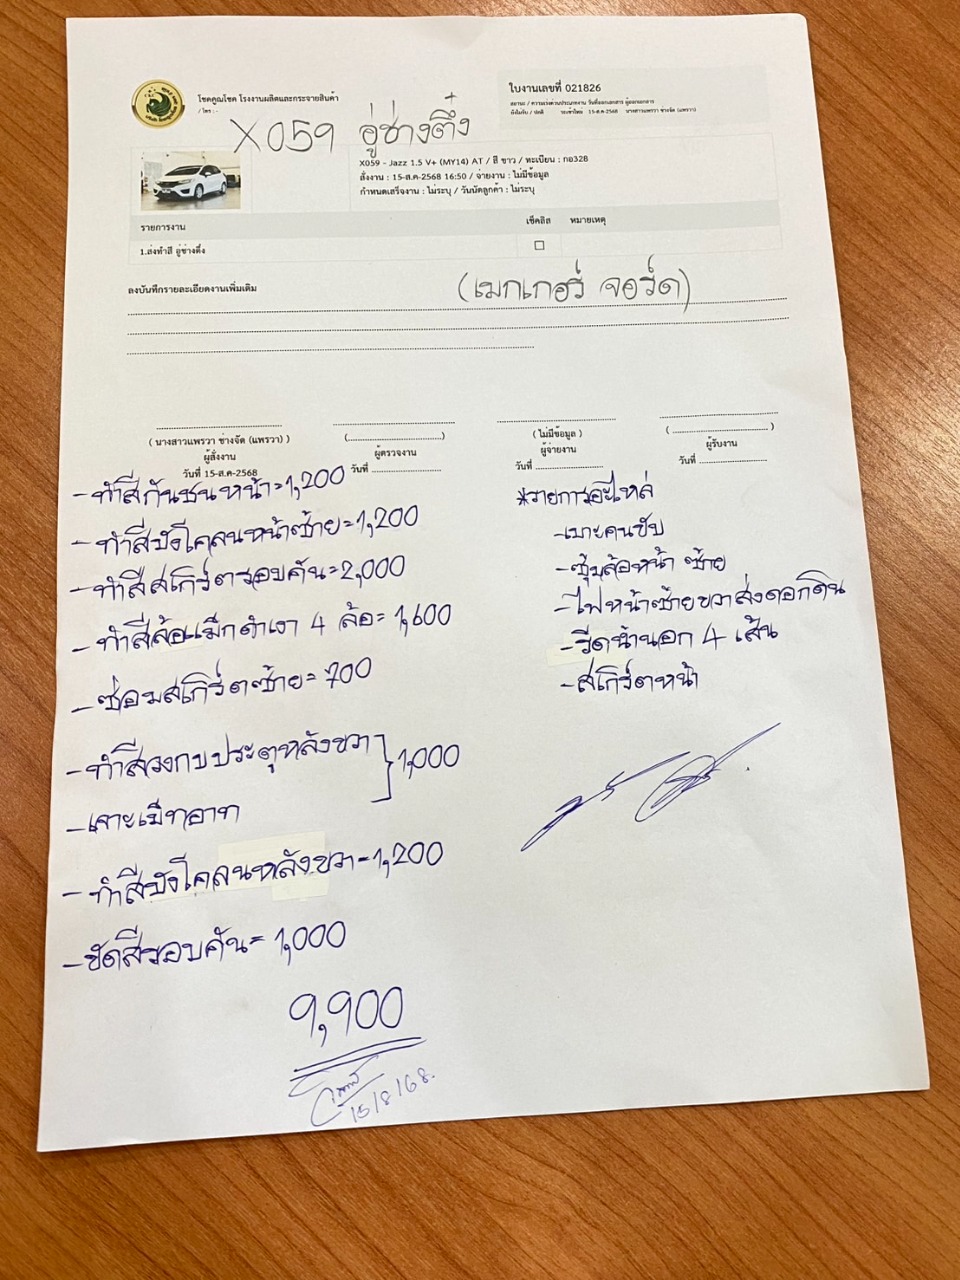 โชคคูณโชค โรงงานผลิตและกระจายสินค้า
/ โทร : -
ใบงานเลขที่ 021826
X059 อู่ช่างติ่ง
X059 - Jazz 1.5 V+ (MY14) AT / สี ขาว / ทะเบียน : กอ328
สั่งงาน : 15-ส.ค-2568 16:50 / จ่ายงาน : ไม่มีข้อมูล
กำหนดเสร็จงาน : ไม่ระบุ / วันนัดลูกค้า : ไม่ระบุ
รายการงาน เช็คลิส หมายเหตุ
1.ส่งทำสี อู่ช่างติ่ง
ลงบันทึกรายละเอียดงานเพิ่มเติม
(เมกเกอร์ จอร์ด)
( นางสาวแพรวา ช่างจัด (แพรวา) )
ผู้สั่งงาน
วันที่ 15-ส.ค-2568
(................................)
ผู้ตรวจงาน
วันที่ ........................
( ไม่มีข้อมูล )
ผู้จ่ายงาน
วันที่ ........................
( ................................ )
ผู้รับงาน
วันที่ ........................
- ทำสีกันชนหน้า = 1,200
- ทำสีบังโคลนหน้าซ้าย = 1,200
- ทำสีสเกิร์ตรอบคัน = 2,000
- ทำสีล้อแม็กดำเงา 4 ล้อ = 1,600
- ซ่อมสเกิร์ตซ้าย = 700
- ทำสีวงกบประตูหลังขวา } 1,000
- ทำสีบังโคลนหลังขวา - 1,200
- ขัดสีรอบคัน = 1,000
9,900
15/8/68.
*รายการอะไหล่
- เบาะคนขับ
- ซุ้มล้อหน้า ซ้าย
- ไฟหน้าซ้ายขวาส่งดอกดิน
- รีดน้ำนอก 4 เส้น
- สเกิร์ตหน้า